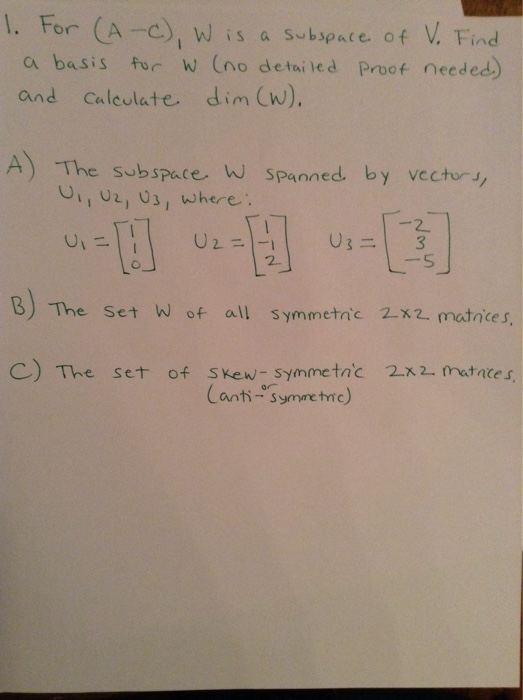 1. For (A-C), W is a subspace of V. Find
a basis for W (no detailed proof needed)
and calculate dim(W).
A) The subspace W spanned by vectors,
U1, U2, U3, where:
U1 = [1 1 0] U2 = [1 -1 2] U3 = [-2 3 -5]
B) The set W of all symmetric 2x2 matrices.
C) The set of skew-symmetric 2x2 matrices.
(anti- or symmetric)